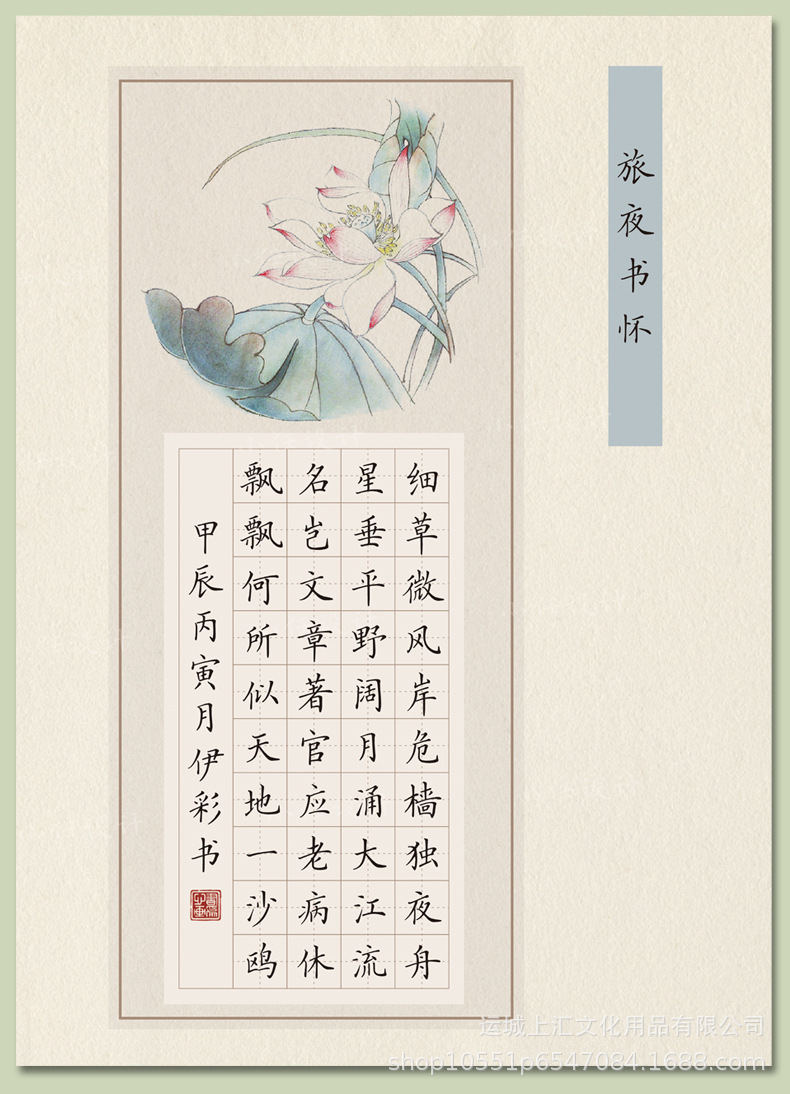 旅夜书怀
细草微风岸危樯独夜舟
星垂平野阔月涌大江流
名岂文章著官应老病休
飘飘何所似天地一沙鸥
甲辰丙寅月伊彩书
运城上汇文化用品有限公司
shop10551p6547084.1688.com